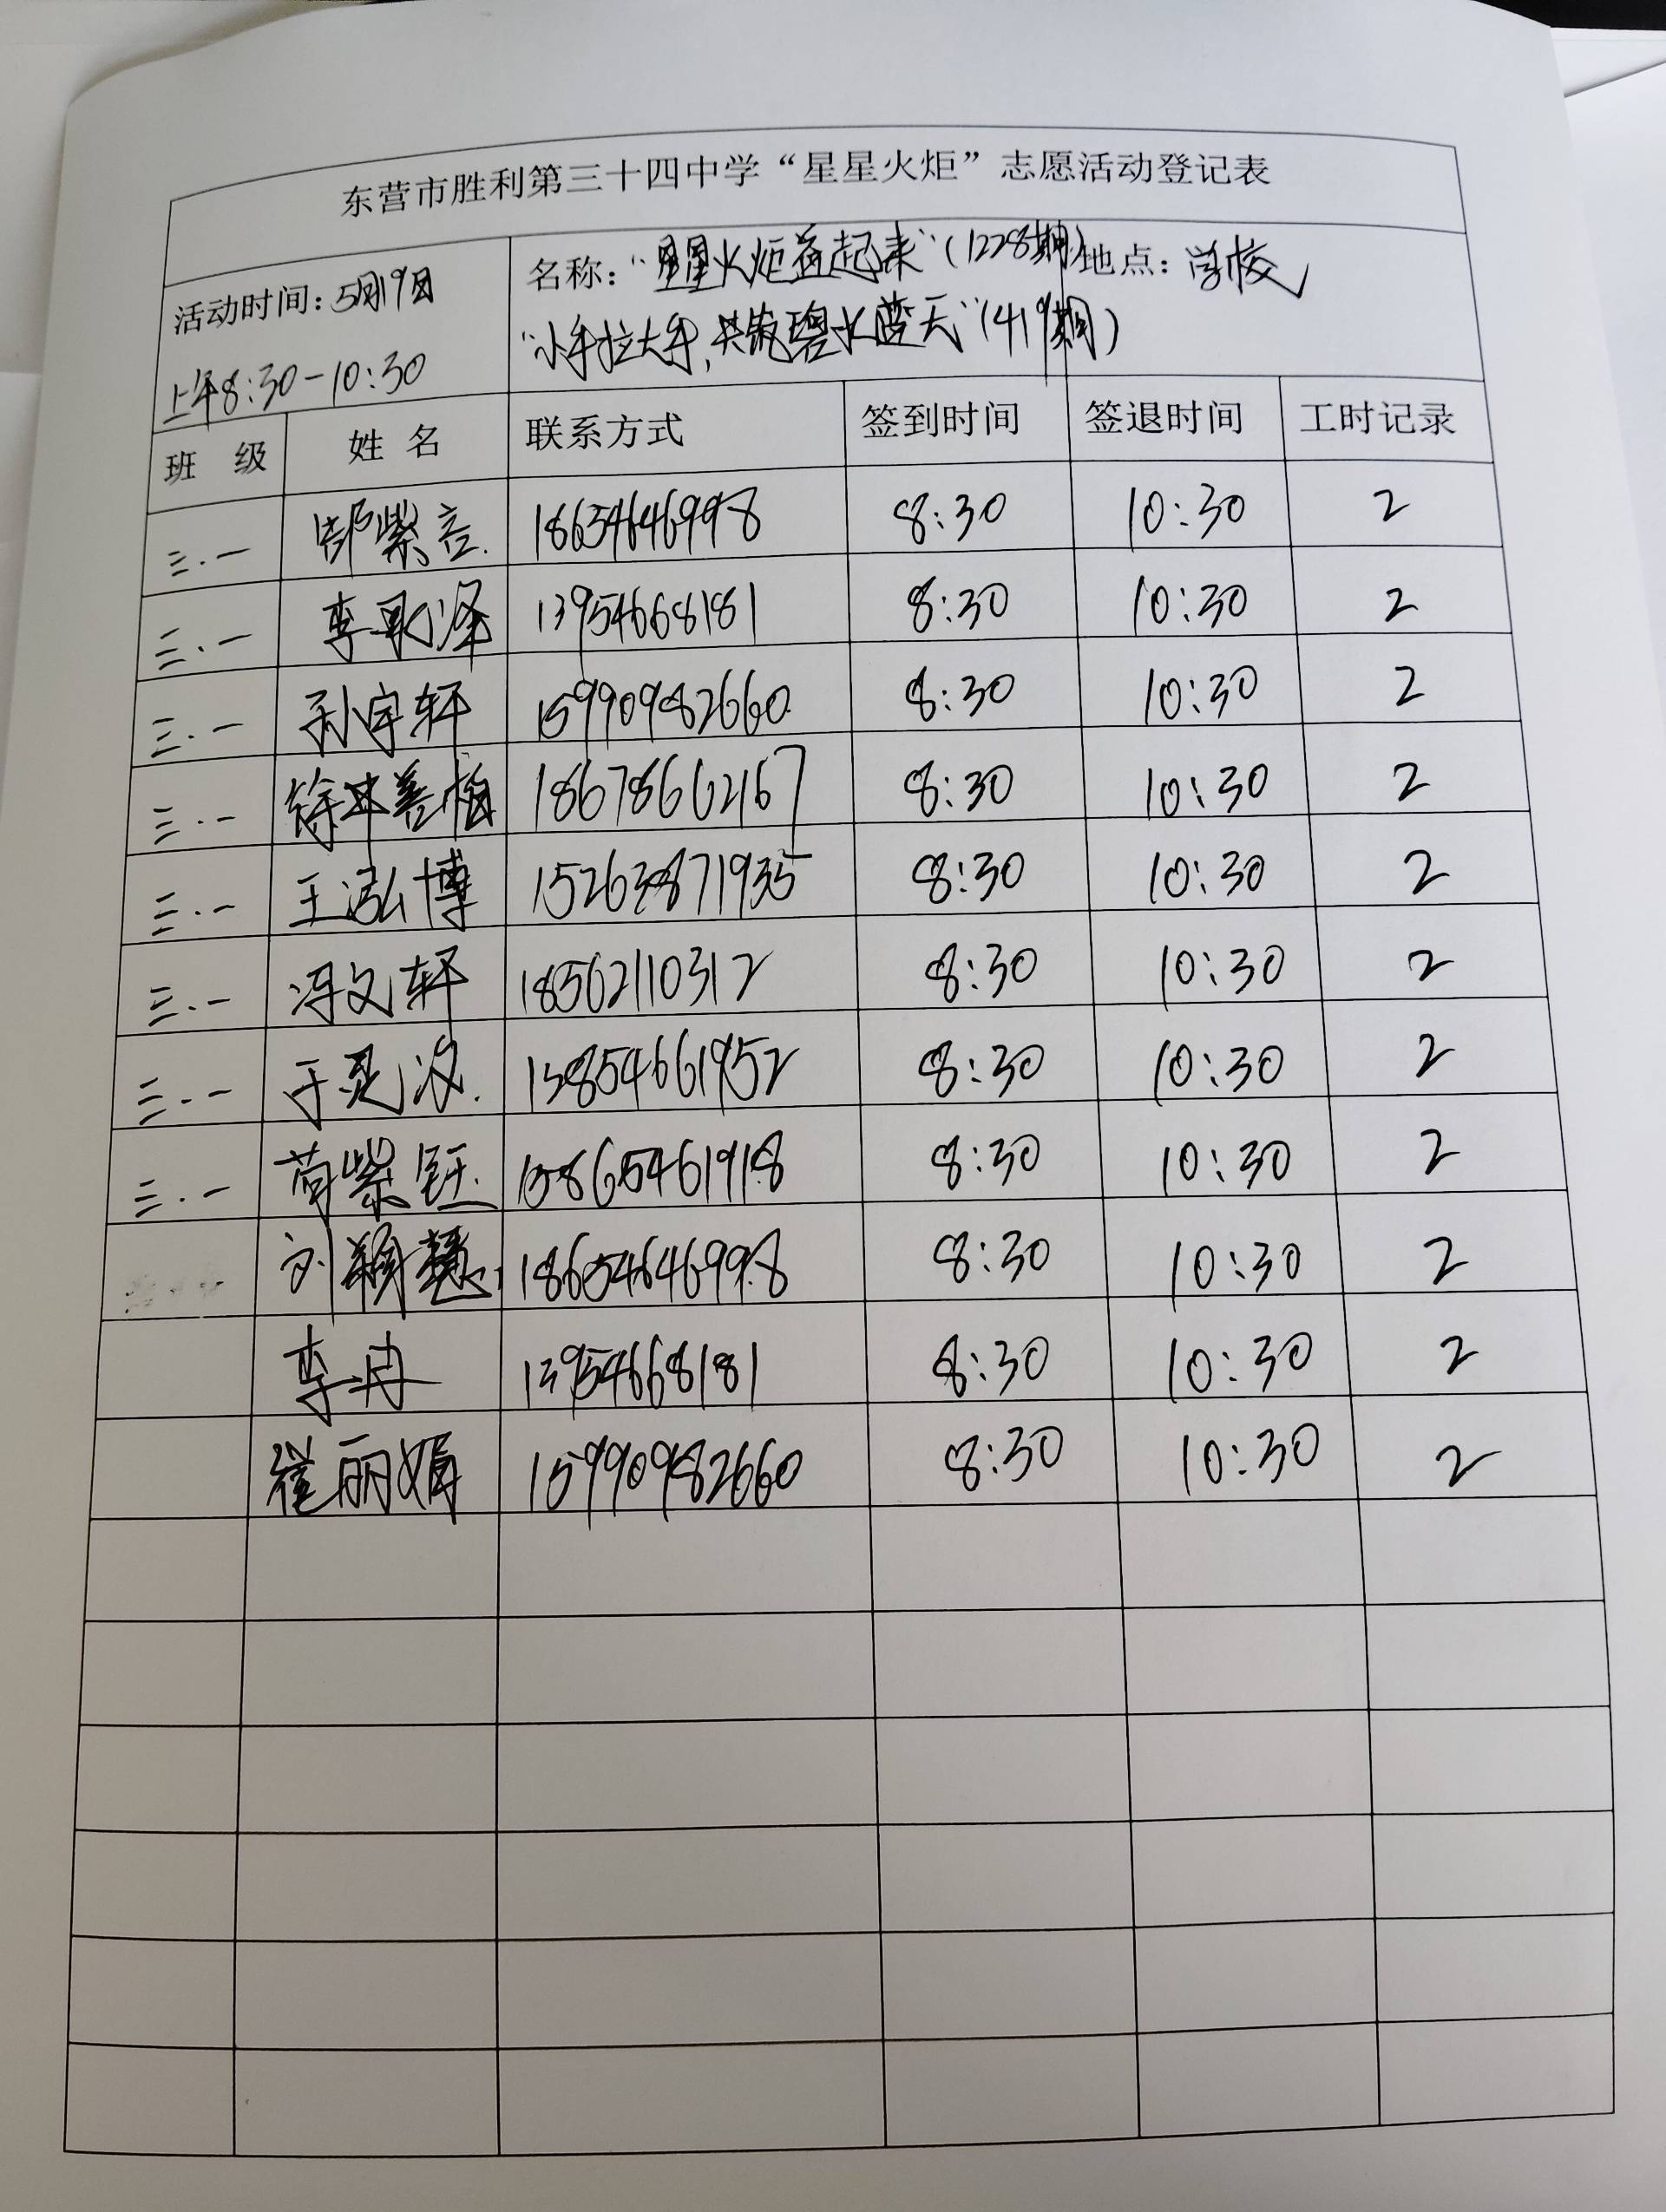 东营市胜利第三十四中学“星星火炬”志愿活动登记表
活动时间：5月19日
上午8:30-10:30
名称：“星星火炬益起来”（1228期）地点：学校
“小手拉大手，共筑碧水蓝天”（419期）
班 级 姓 名 联系方式 签到时间 签退时间 工时记录
三.一 紫言 18654646998 8:30 10:30 2
三.一 李 泽 13954668181 8:30 10:30 2
三.一 孙宇轩 15990982660 8:30 10:30 2
三.一 徐 善 18678662167 8:30 10:30 2
三.一 王泓博 15263871935 8:30 10:30 2
三.一 冯文轩 18562110312 8:30 10:30 2
三.一 于灵汐 13854661952 8:30 10:30 2
三.一 苟紫钰 15865461918 8:30 10:30 2
刘颖慧 18654646998 8:30 10:30 2
李冉 13954668181 8:30 10:30 2
崔丽娟 15990982660 8:30 10:30 2